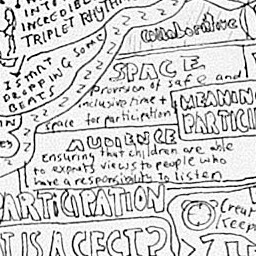 INTO
INCREDIBLE
TRIPLET RHYTHM
IS MAT
DROPPING SOME
BEATS
Collaborative
SPACE
Provision of safe and
inclusive time +
space for participation
MEANING
PARTICIP
AUDIENCE
Ensuring that children are able
to express views to people who
have a responsibility to listen
PARTICIPATION